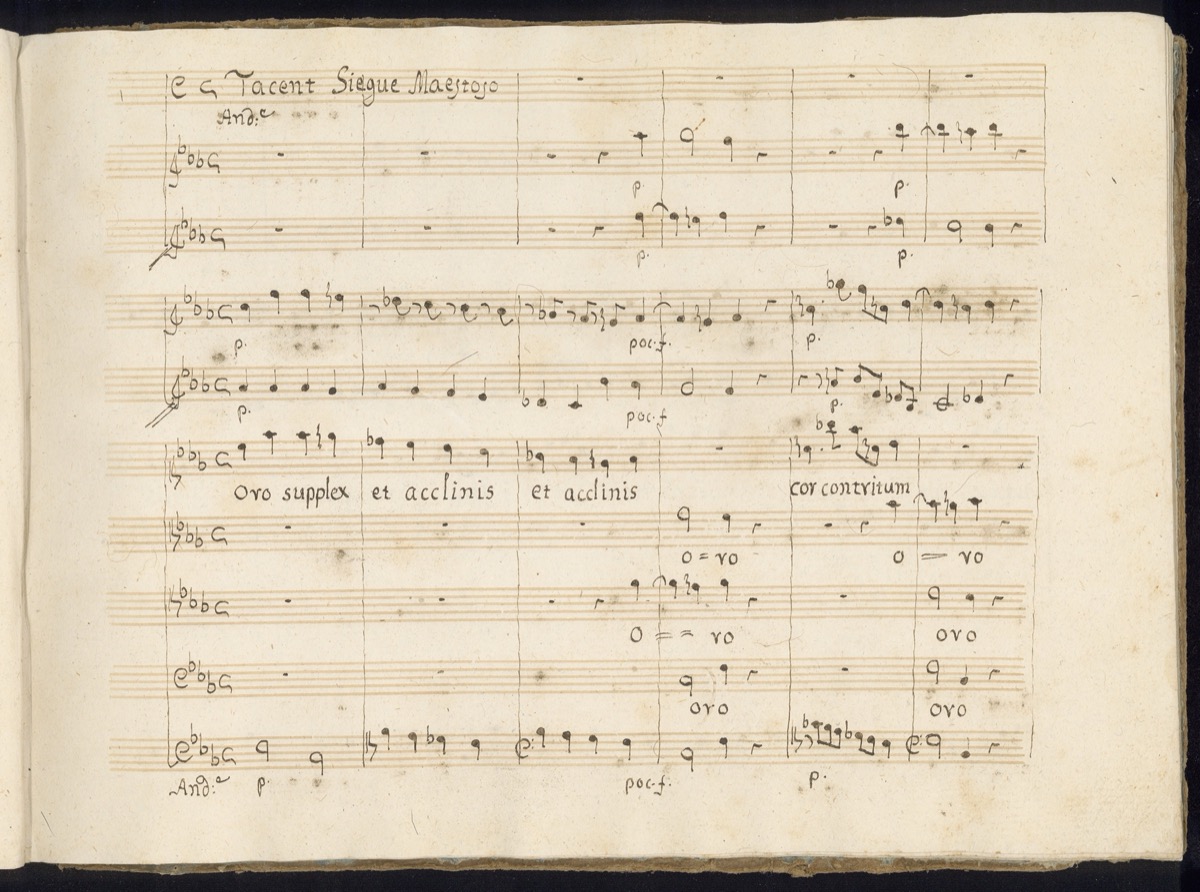 Tacent Siegue Maestoso
And:e
p. p.
p. p.
p. poc. f. p.
p. poc. f p.
Oro supplex et acclinis et acclinis cor contritum
o = ro o = ro
o = = ro oro
oro oro
And:e p. poc. f. p.